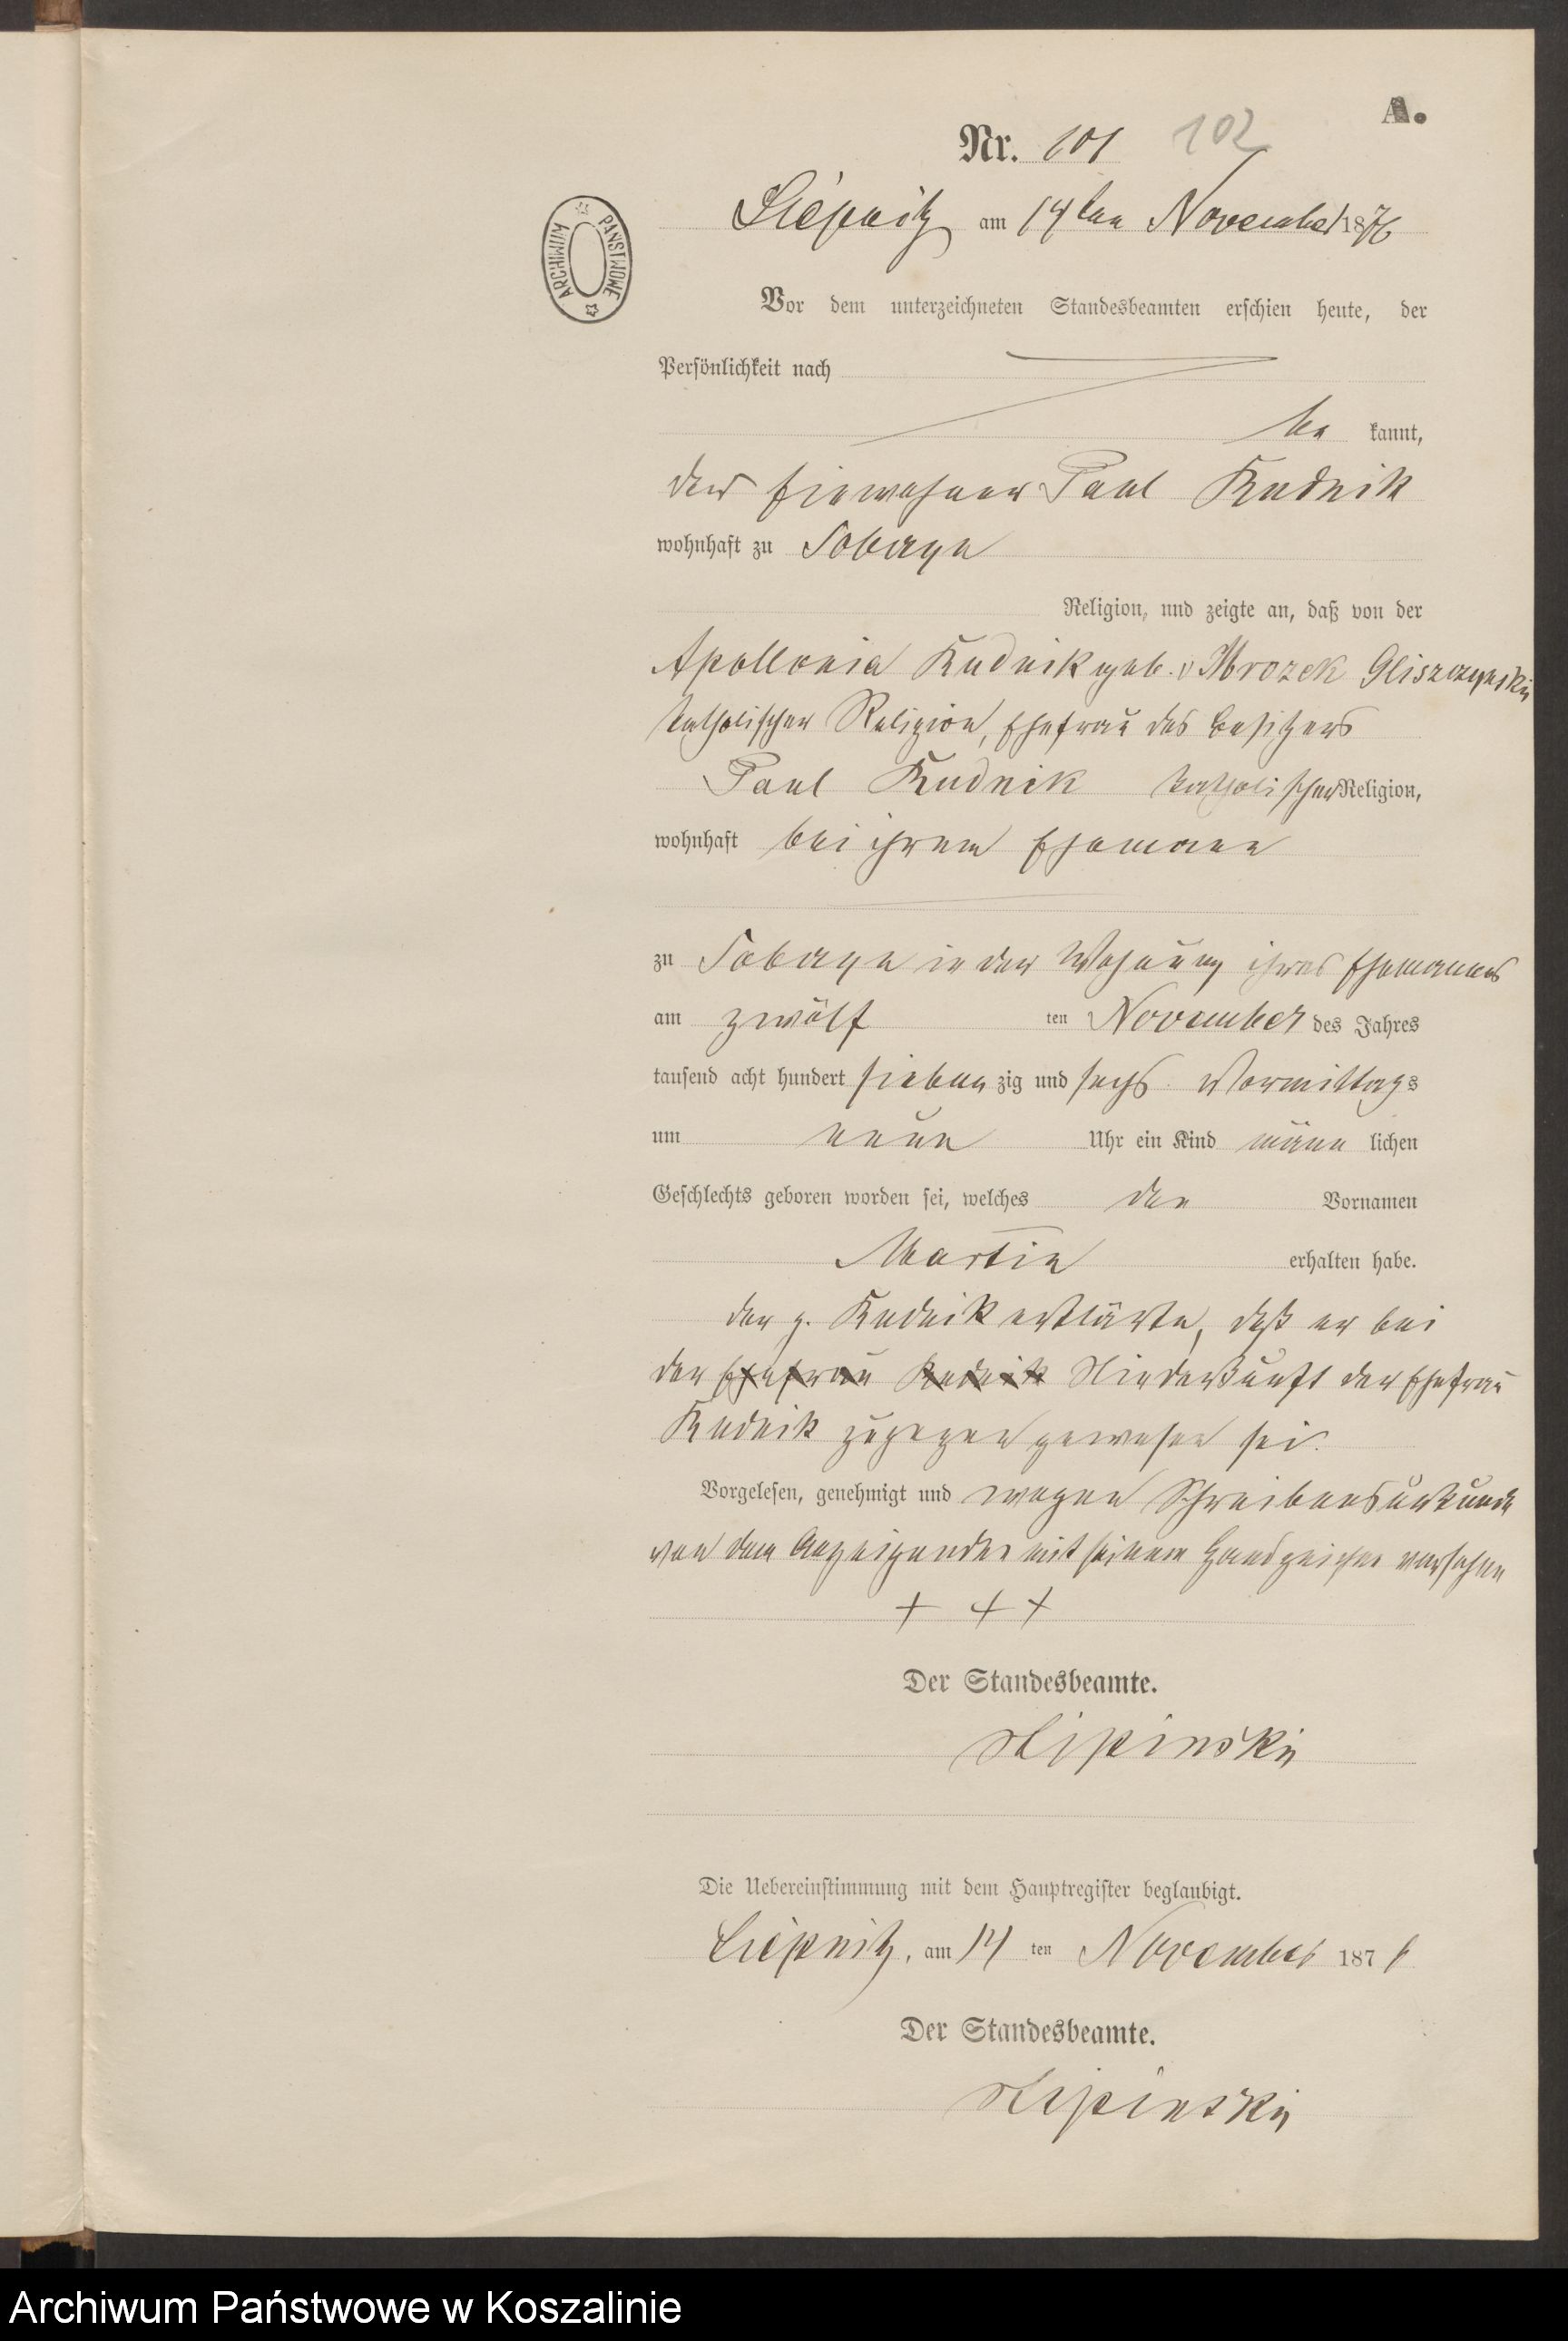 A.
Nr. 101 102
Liepnitz am 14ten November 1876
Vor dem unterzeichneten Standesbeamten erschien heute, der
Persönlichkeit nach
be kannt,
der Einwohner Paul Kudnik
wohnhaft zu Sobczyn
Religion, und zeigte an, daß von der
Apollonia Kudnik geb. v Mrozek Gliszczynski
katholischer Religion, Ehefrau des Besitzers
Paul Kudnik katholischer Religion,
wohnhaft bei ihrem Ehemann
zu in der Wohnung ihres Ehemannes
am zwölf ten November des Jahres
tausend acht hundert sieben zig und sechs Vormittags
um neun Uhr ein Kind männ lichen
Geschlechts geboren worden sei, welches den Vornamen
Martin erhalten habe.
der p. Kudnik erklärte, daß er bei
der Ehefrau Kudnik Niederkunft der Ehefrau
Kudnik zugegen gewesen sei.
Vorgelesen, genehmigt und wegen Schreibensunkunde
von dem Anzeigenden mit seinem Handzeichen versehen
+ + +
Der Standesbeamte.
Lipinski
Die Uebereinstimmung mit dem Hauptregister beglaubigt.
Liepnitz, am 14 ten November 187 6
Der Standesbeamte.
Lipinski
ARCHIWUM PAŃSTWOWE
Archiwum Państwowe w Koszalinie